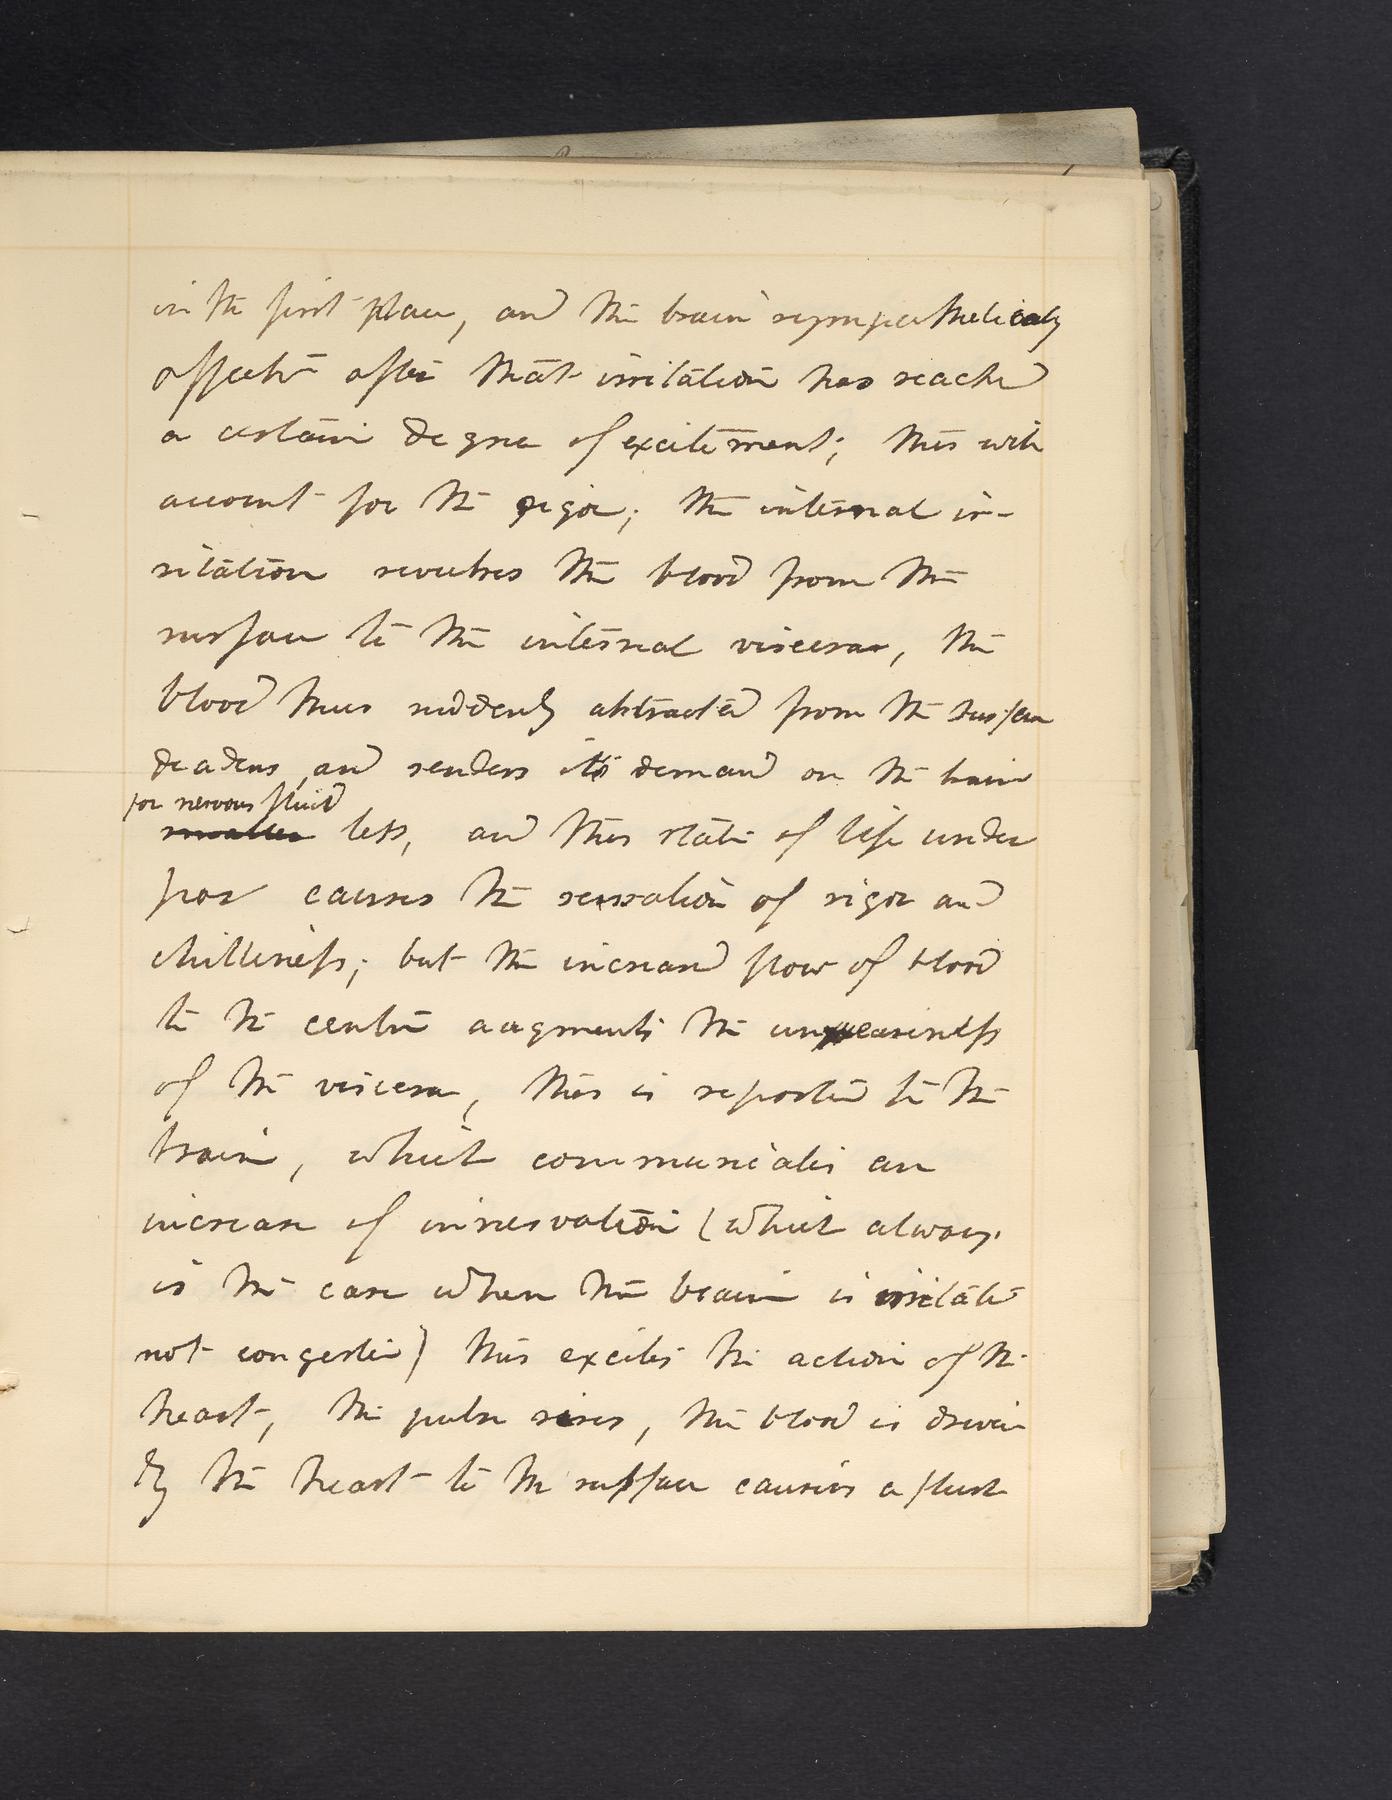 in the first place, and the brain sympathetically
affected after that irritation has reached
a certain degree of excitement; this will
account for the rigor; the internal ir-
ritation revulses the blood from the
surface to the internal viscera, the
blood thus suddenly abstracted from the surface
deadens, and renders its demand on the brain
for nervous fluid
smaller less, and this state of life under
par causes the sensation of rigor and
chilliness; but the increased flow of blood
to the centre augments the uneasiness
of the viscera, this is reported to the
brain, which communicates an
increase of innervation (which always
is the case when the brain is irritated
not congested) this excites the action of the
heart, the pulse rises, the blood is driven
by the heart to the surface causing a flush